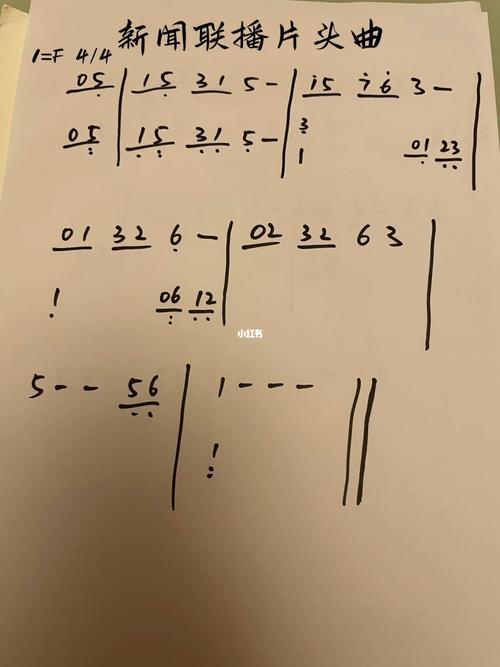 新闻联播片头曲
1=F 4/4
05 | 15 31 5 - | 15 76 3 -
05 | 15 31 5 - | 3
1 01 23 |
01 32 6 - | 02 32 6 3 |
1 06 12
小红书
5 - - 56 | 1 - - - ||
1